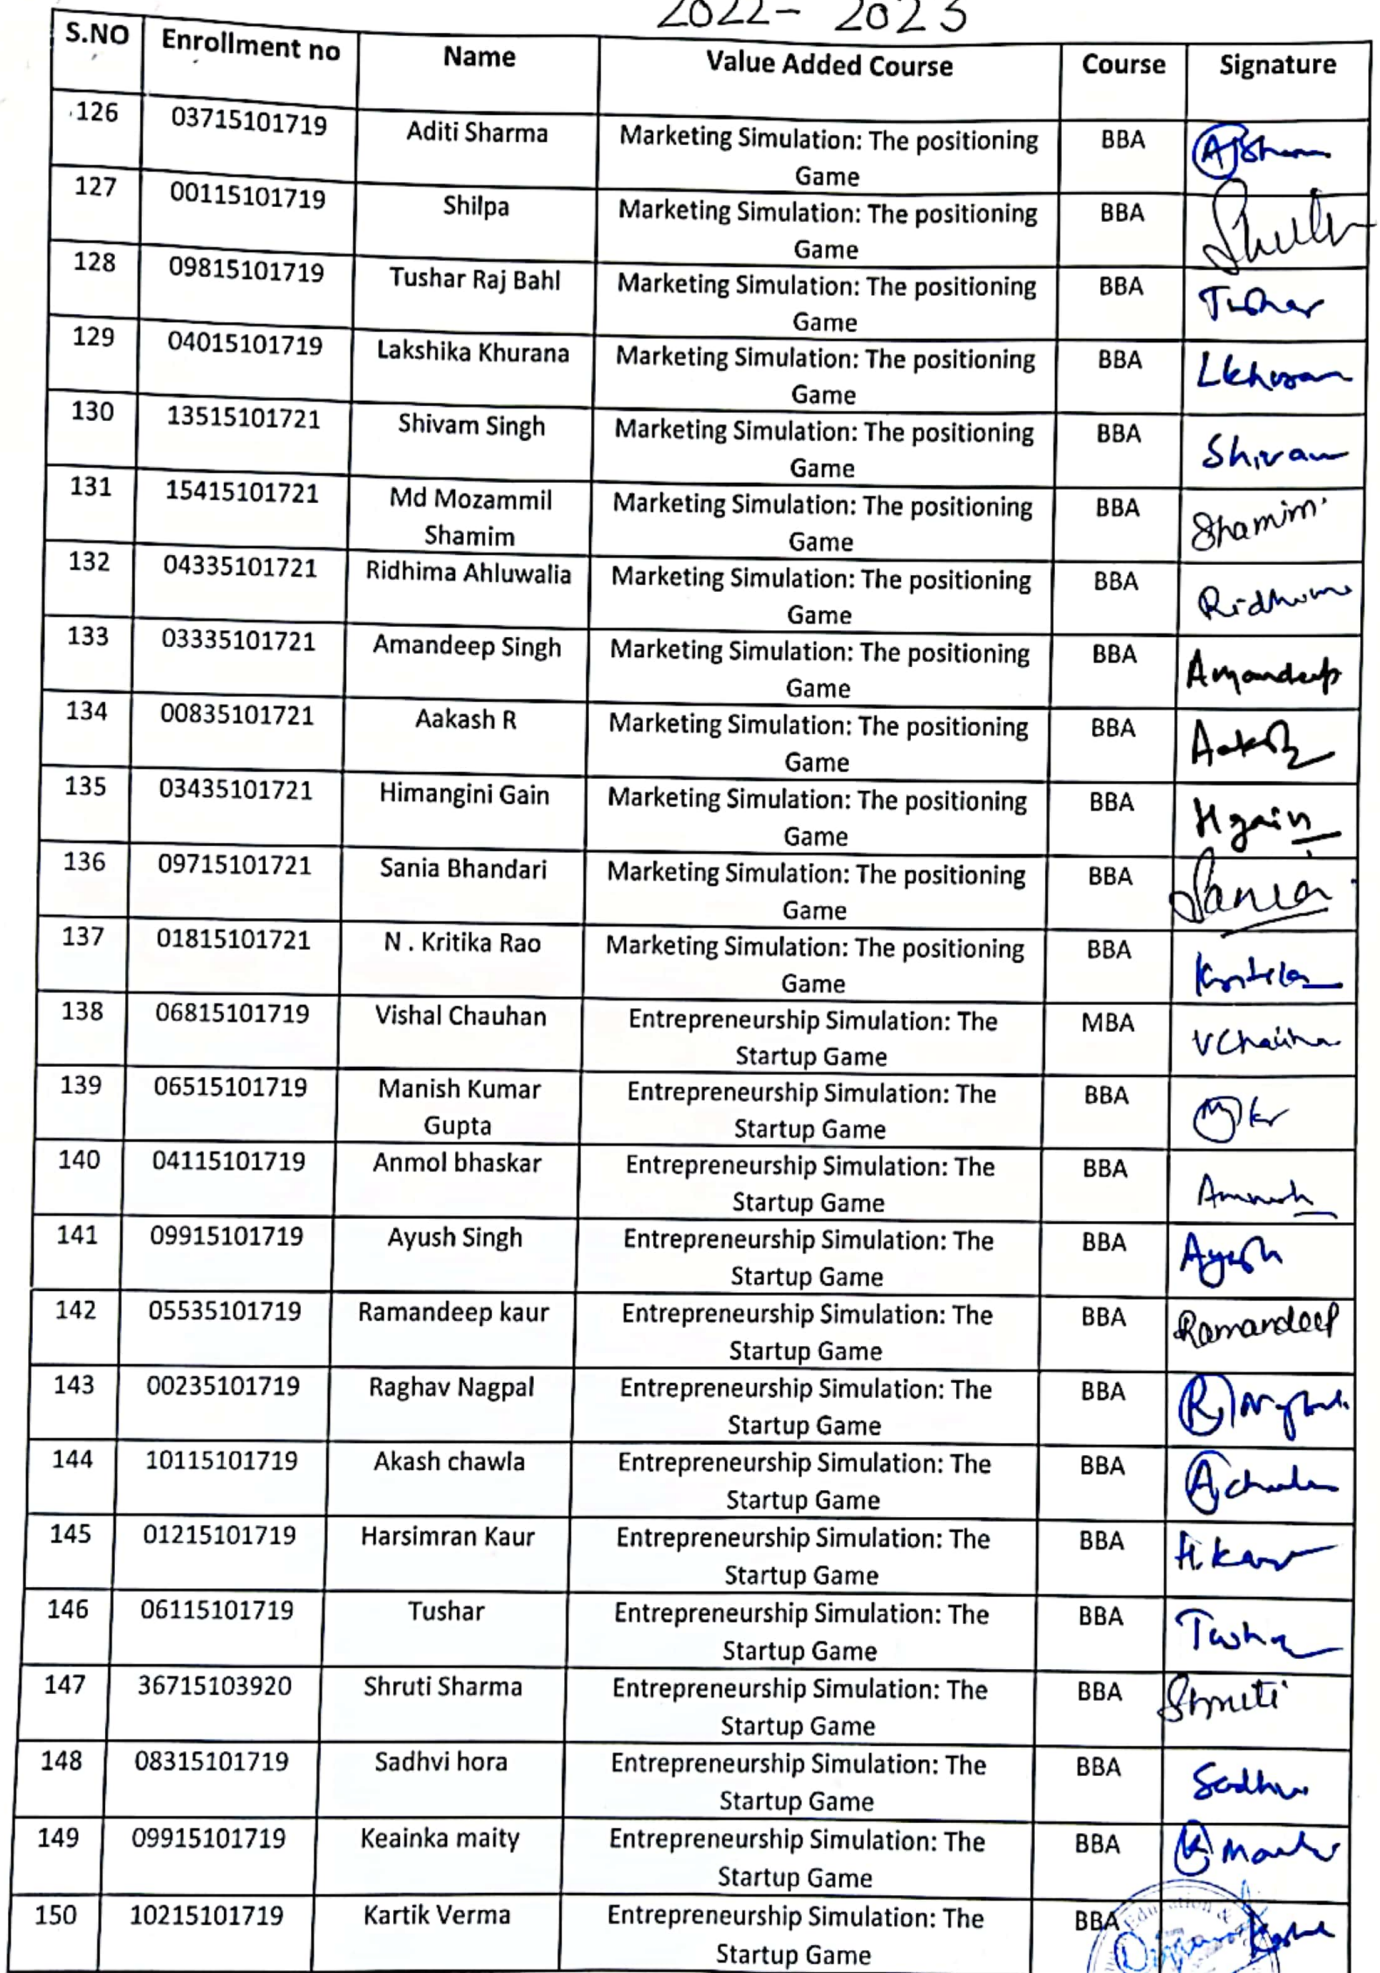 2022- 2023
S.NO Enrollment no Name Value Added Course Course Signature
126 03715101719 Aditi Sharma Marketing Simulation: The positioning BBA
Game
127 00115101719 Shilpa Marketing Simulation: The positioning BBA
Game
128 09815101719 Tushar Raj Bahl Marketing Simulation: The positioning BBA Tushar
Game
129 04015101719 Lakshika Khurana Marketing Simulation: The positioning BBA
Game
130 13515101721 Shivam Singh Marketing Simulation: The positioning BBA Shivam
Game
131 15415101721 Md Mozammil Marketing Simulation: The positioning BBA Shamim
Shamim Game
132 04335101721 Ridhima Ahluwalia Marketing Simulation: The positioning BBA Ridhima
Game
133 03335101721 Amandeep Singh Marketing Simulation: The positioning BBA Amandeep
Game
134 00835101721 Aakash R Marketing Simulation: The positioning BBA
Game
135 03435101721 Himangini Gain Marketing Simulation: The positioning BBA Hgain
Game
136 09715101721 Sania Bhandari Marketing Simulation: The positioning BBA Sania
Game
137 01815101721 N . Kritika Rao Marketing Simulation: The positioning BBA
Game
138 06815101719 Vishal Chauhan Entrepreneurship Simulation: The MBA
Startup Game
139 06515101719 Manish Kumar Entrepreneurship Simulation: The BBA
Gupta Startup Game
140 04115101719 Anmol bhaskar Entrepreneurship Simulation: The BBA
Startup Game
141 09915101719 Ayush Singh Entrepreneurship Simulation: The BBA Ayush
Startup Game
142 05535101719 Ramandeep kaur Entrepreneurship Simulation: The BBA Ramandeep
Startup Game
143 00235101719 Raghav Nagpal Entrepreneurship Simulation: The BBA
Startup Game
144 10115101719 Akash chawla Entrepreneurship Simulation: The BBA
Startup Game
145 01215101719 Harsimran Kaur Entrepreneurship Simulation: The BBA H.kaur
Startup Game
146 06115101719 Tushar Entrepreneurship Simulation: The BBA Tushar
Startup Game
147 36715103920 Shruti Sharma Entrepreneurship Simulation: The BBA Shruti
Startup Game
148 08315101719 Sadhvi hora Entrepreneurship Simulation: The BBA Sadhvi
Startup Game
149 09915101719 Keainka maity Entrepreneurship Simulation: The BBA
Startup Game
150 10215101719 Kartik Verma Entrepreneurship Simulation: The BBA
Startup Game